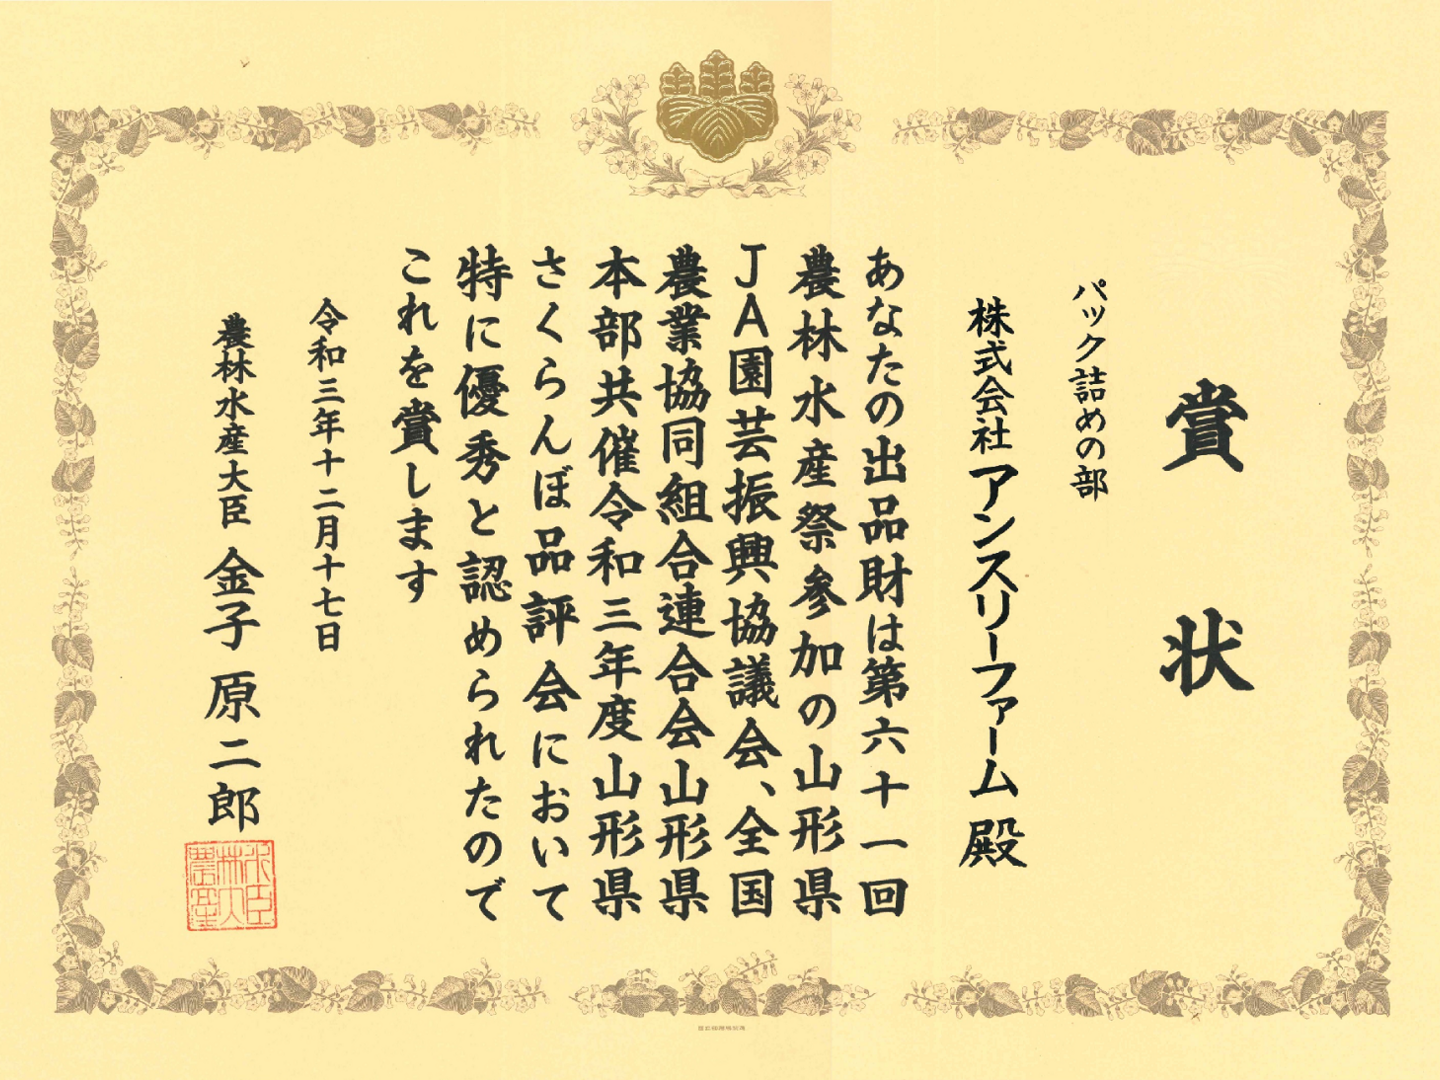 賞状
パック詰めの部
株式会社アンスリーファーム殿
あなたの出品財は第六十一回
農林水産祭参加の山形県
JA園芸振興協議会、全国
農業協同組合連合会山形県
本部共催令和三年度山形県
さくらんぼ品評会において
特に優秀と認められたので
これを賞します
令和三年十二月十七日
農林水産大臣 金子原二郎